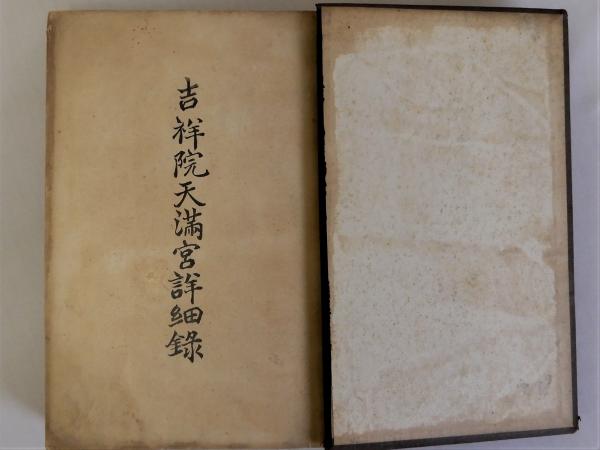 吉祥院天満宮詳細録